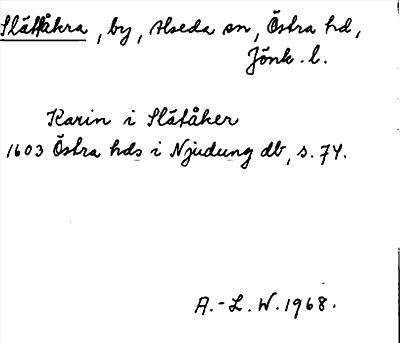 Slättåkra, by, Alseda sn, Östra hd,
Jönk. l.
Karin i Slätåker
1603 Östra hds i Njudung db, s. 74.
A.-L. W. 1968.